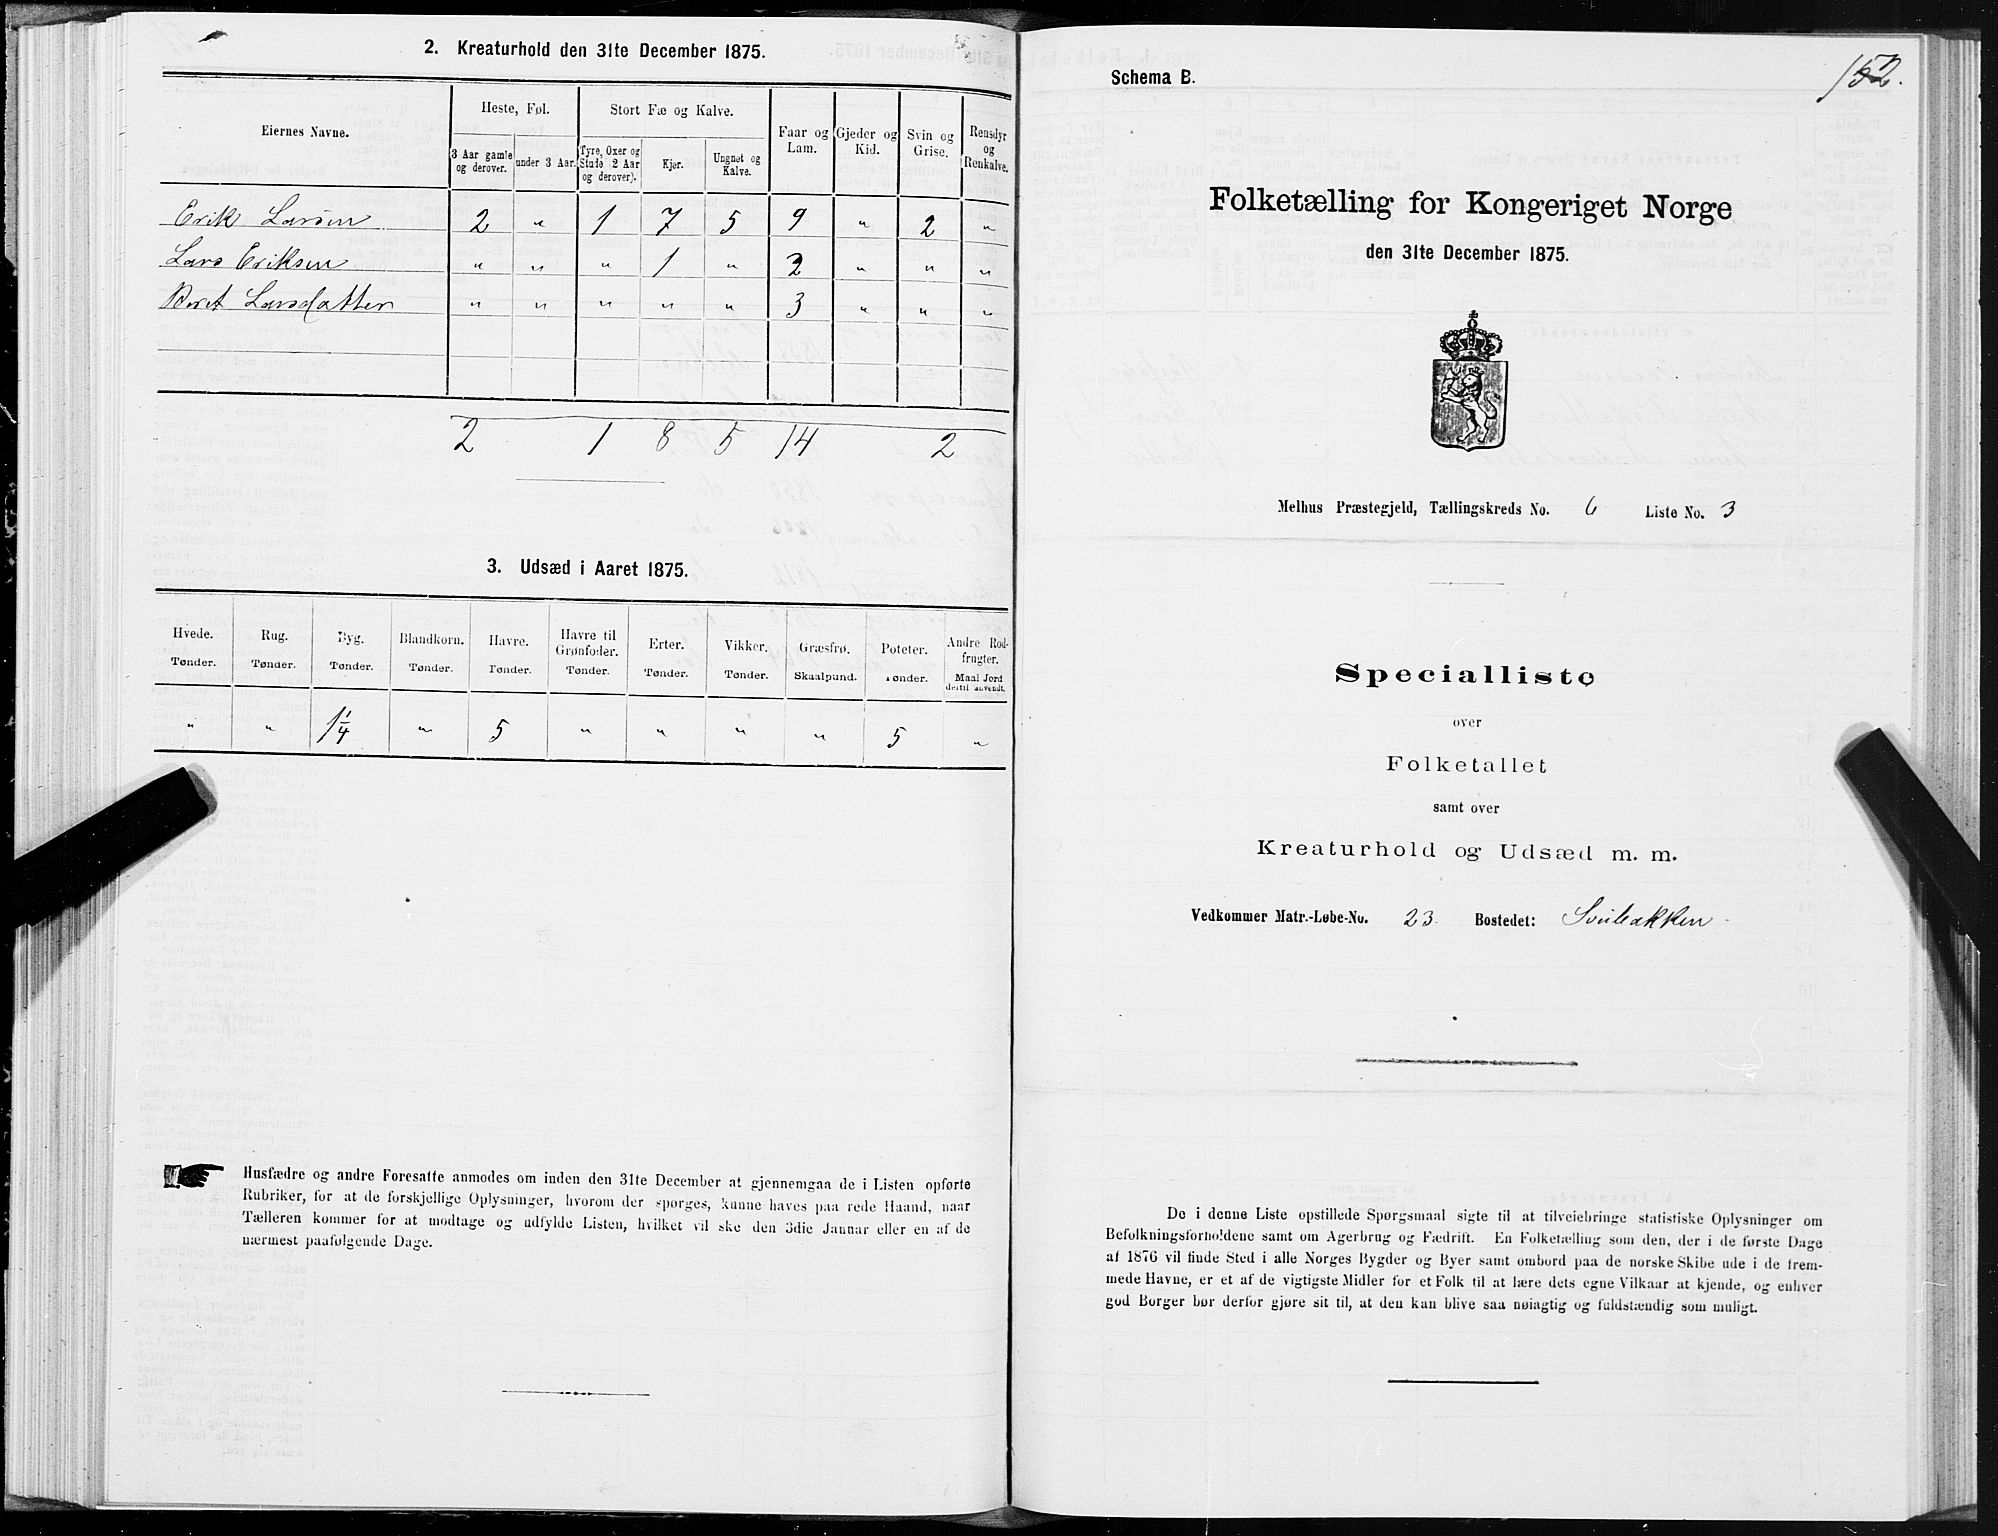 2. Kreaturhold den 31te December 1875.
Eiernes Navne.
Heste, Føl.
Stort Fæ og Kalve.
Faar og Lam.
Gjeder og Kid.
Svin og Grise.
Rensdyr og Renkalve.
3 Aar gamle og derover.
under 3 Aar.
Tyre, Oxer og Stude (2 Aar og derover).
Kjør.
Ungnet og Kalve.
Erik Larsen 2 " 1 7 5 9 " 2 "
Lars Eriksen " " " 1 " 2 " " "
Beret Larsdatter " " " " " 3 " " "
2 1 8 5 14 2
3. Udsæd i Aaret 1875.
Hvede. Tønder.
Rug. Tønder.
Byg. Tønder.
Blandkorn. Tønder.
Havre. Tønder.
Havre til Grønfoder. Tønder.
Erter. Tønder.
Vikker. Tønder.
Græsfrø. Skaalpund.
Poteter. Tønder.
Andre Rodfrugter. Maal Jord dertil anvendt.
" " 1 1/4 " 5 " " " " 5 "
Husfædre og andre Foresatte anmodes om inden den 31te December at gjennemgaa de i Listen opførte
Rubriker, for at de forskjellige Oplysninger, hvorom der spørges, kunne haves paa rede Haand, naar
Tælleren kommer for at modtage og udfylde Listen, hvilket vil ske den 3die Januar eller en af de
nærmest paafølgende Dage.
152.
Schema B.
Folketælling for Kongeriget Norge
den 31te December 1875.
Melhus Præstegjeld, Tællingskreds No. 6 Liste No. 3
Specialliste
over
Folketallet
samt over
Kreaturhold og Udsæd m. m.
Vedkommer Matr.-Løbe-No. 23. Bostedet:
De i denne Liste opstillede Spørgsmaal sigte til at tilveiebringe statistiske Oplysninger om
Befolkningsforholdene samt om Agerbrug og Fædrift. En Folketælling som den, der i de første Dage
af 1876 vil finde Sted i alle Norges Bygder og Byer samt ombord paa de norske Skibe ude i de frem-
mede Havne, er et af de vigtigste Midler for et Folk til at lære dets egne Vilkaar at kjende, og enhver
god Borger bør derfor gjøre sit til, at den kan blive saa nøiagtig og fuldstændig som muligt.